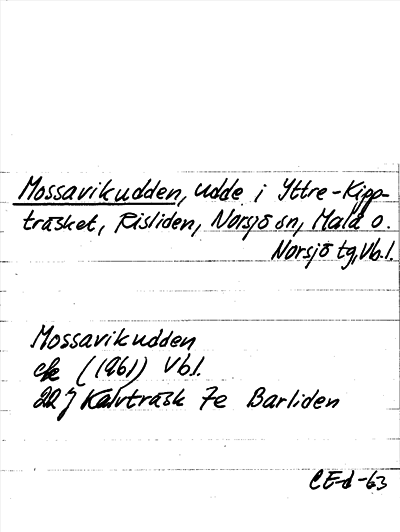 Mossavikudden, udde i Yttre-Kipp-
träsket, Risliden, Norsjö sn, Malå o.
Norsjö tg, Vb.l.
Mossavikudden
ek (1961) Vbl.
22 J Kalvträsk 7e Barliden
CEd-63